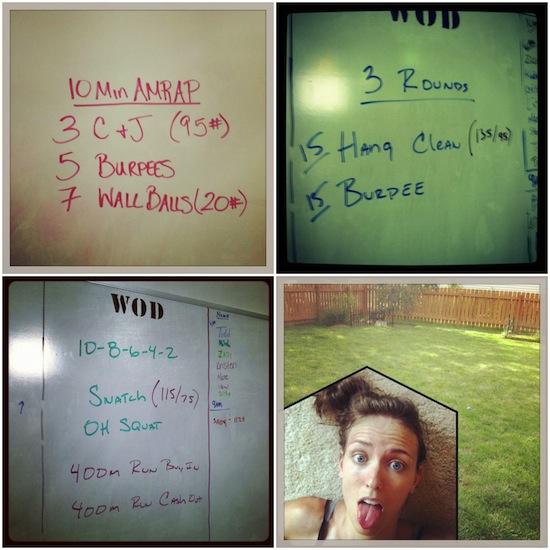 10 Min AMRAP
3 C + J (95#)
5 BURPEES
7 WALL BALLS (20#)
WOD
3 ROUNDS
15 HANG CLEAN (135/95)
15 BURPEE
WOD
10-8-6-4-2
SNATCH (115/75)
OH SQUAT
400m RUN BUY IN
400m RUN CASH OUT
NAME
Todd